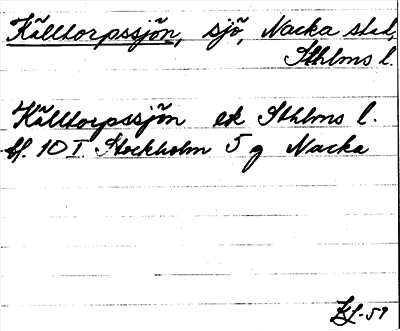 Källtorpssjön, sjö, Nacka stad,
Sthlms l.
Källtorpssjön ek Sthlms l.
bl. 10 I. Stockholm 5 g Nacka